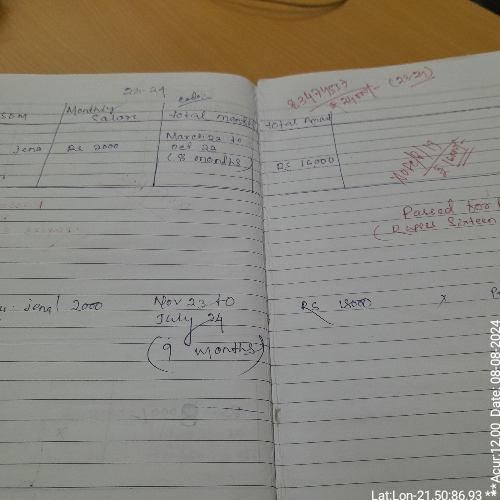 23-24
83474537
(23-24)
Monthly
Salary
total months
total Amount
Jena
Rs 2000
March 23 to
Oct 23
(8 months)
Rs 16000
Passed for
(Rupees Sixteen
Jena 2000
Nov 23 to
July 24
(9 months)
Rs 18000
x
Lat:Lon-21.50:86.93 *** Accur:12.00 Date: 08-08-2024